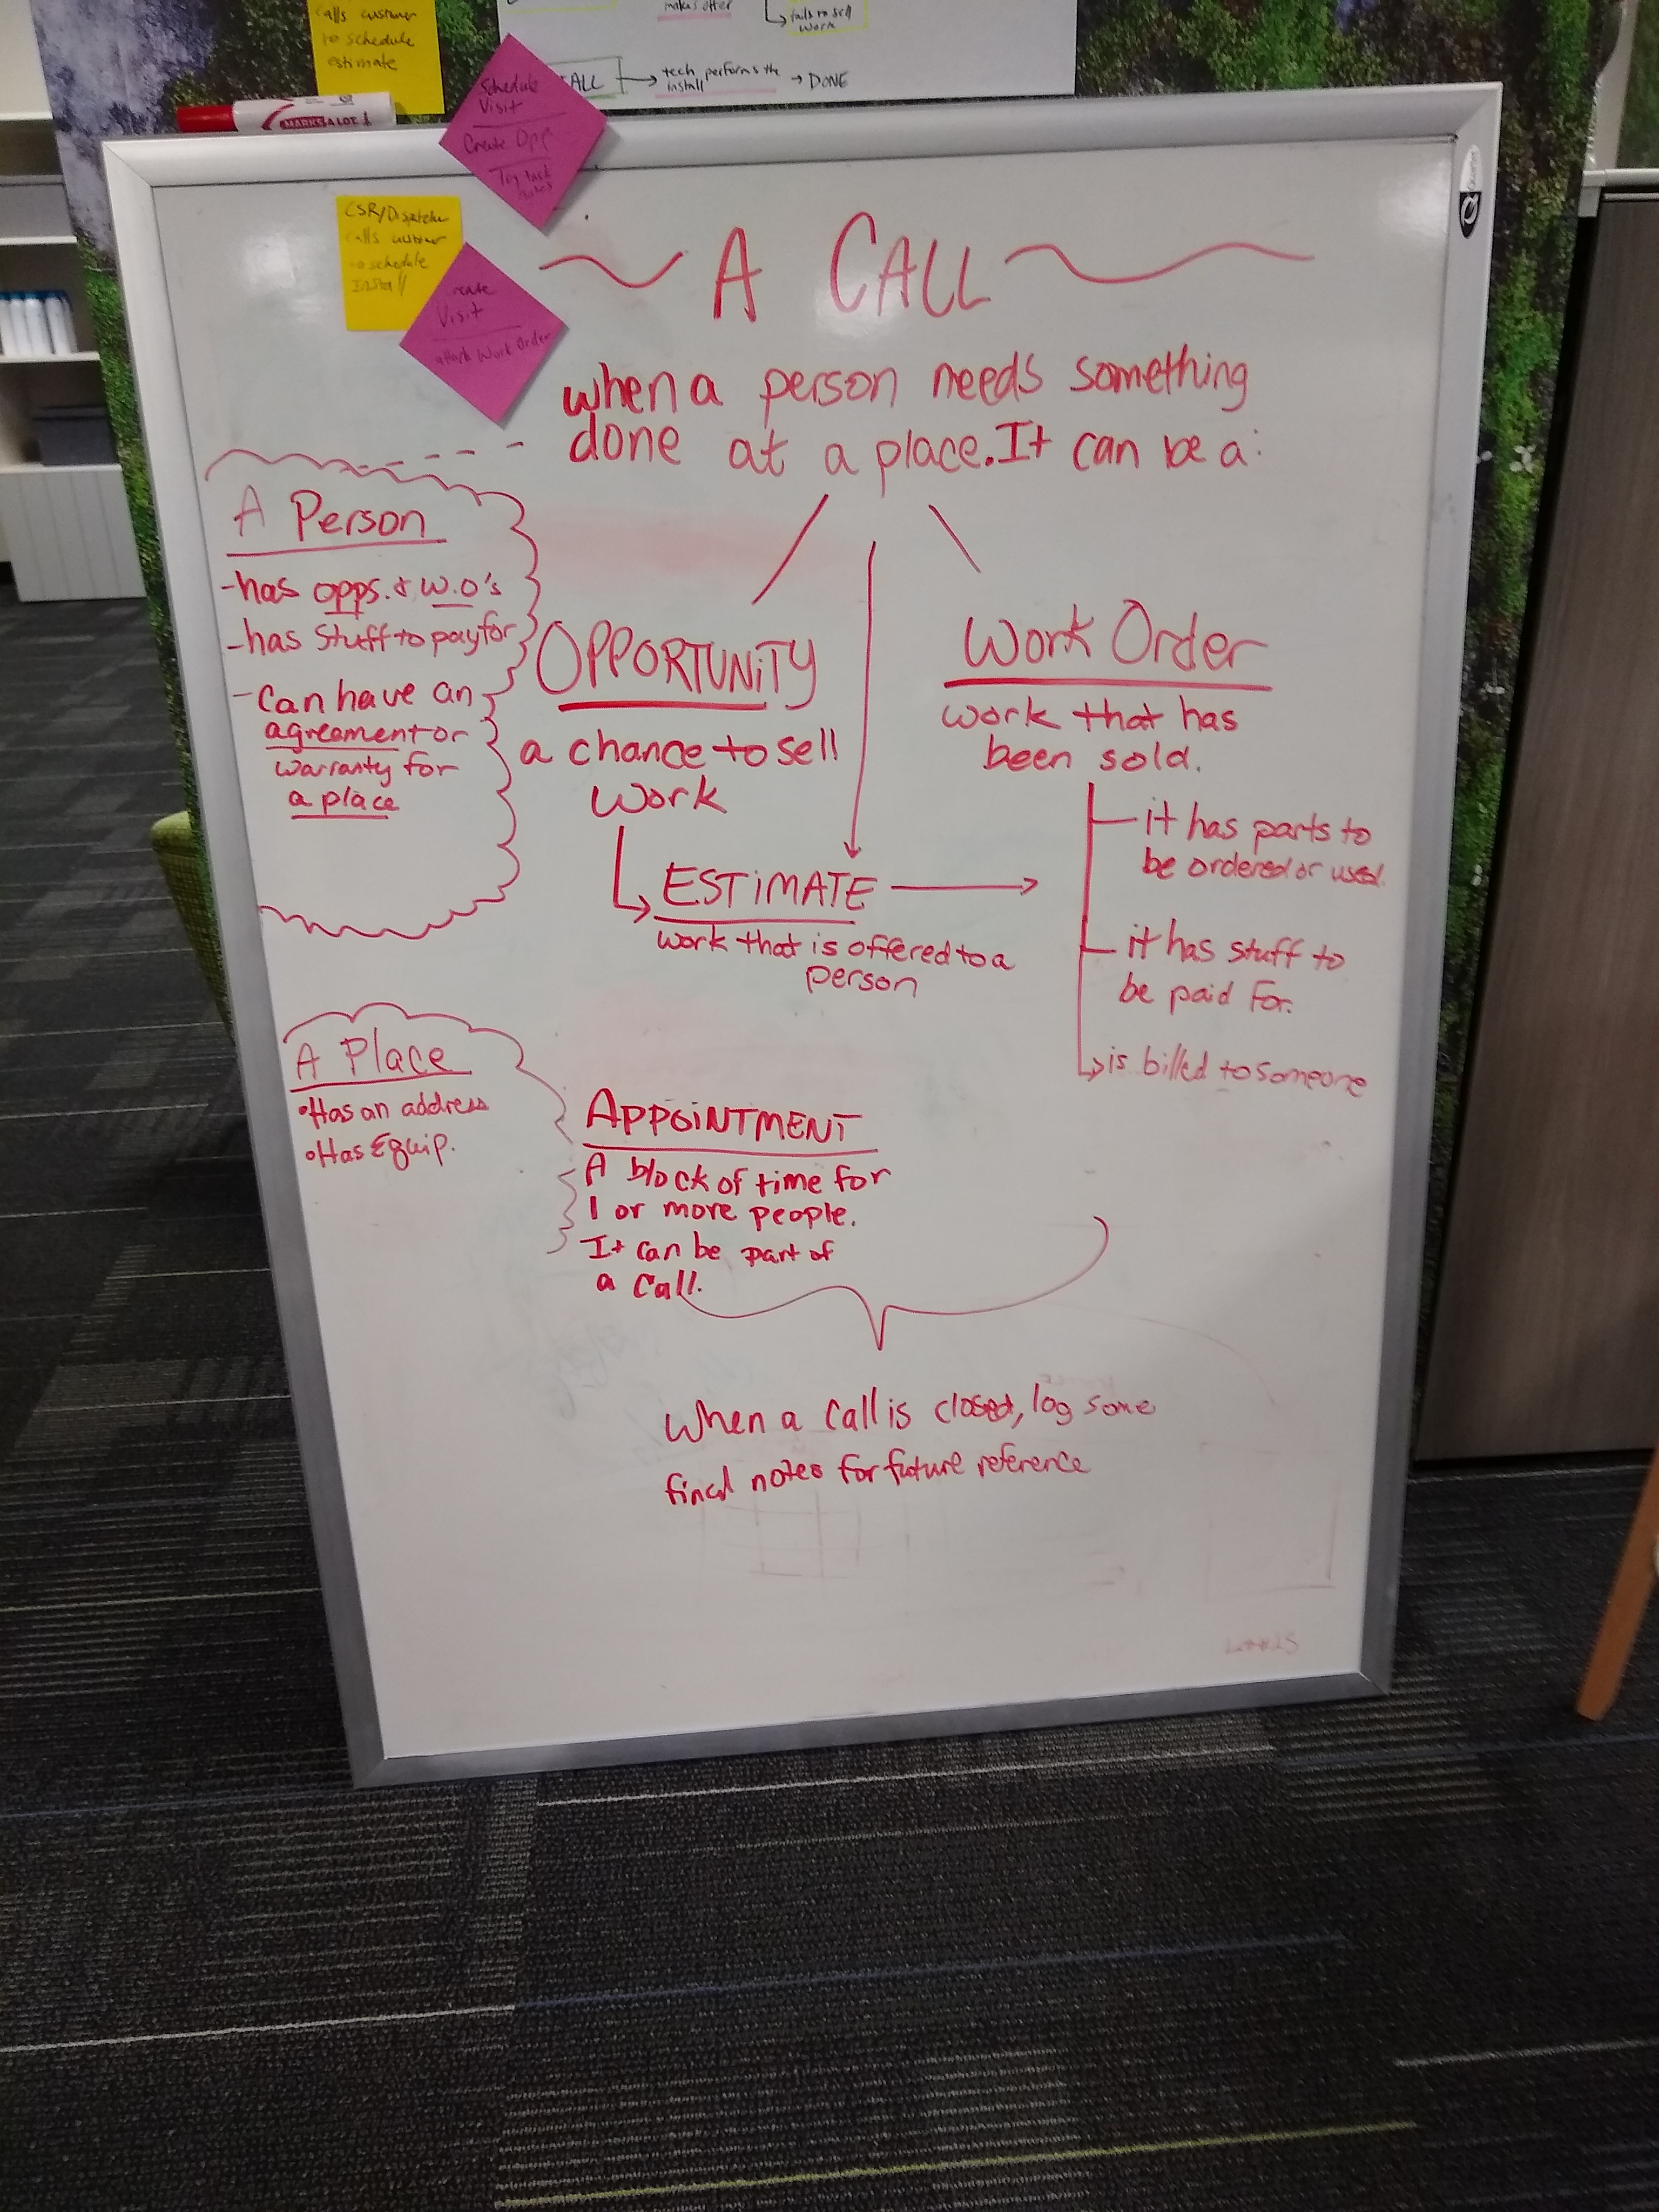 calls customer
to schedule
estimate
makes offer
fails to sell
work
ALL → tech performs the → DONE
install
MARKS A LOT
Schedule
Visit
Create Opp
CSR/Dispatcher
calls customer
to schedule
Install
reate
Visit
attach Work Order
A CALL
when a person needs something
done at a place. It can be a:
A Person
-has opps. & W.O's
-has stuff to pay for
-Can have an
agreement or
warranty for
a place
OPPORTUNITY
a chance to sell
work
ESTIMATE
work that is offered to a
person
Work Order
work that has
been sold.
it has parts to
be ordered or used.
it has stuff to
be paid for.
is billed to someone
A Place
•Has an address
•Has Equip.
APPOINTMENT
A block of time for
1 or more people.
It can be part of
a Call.
When a Call is closed, log some
final notes for future reference